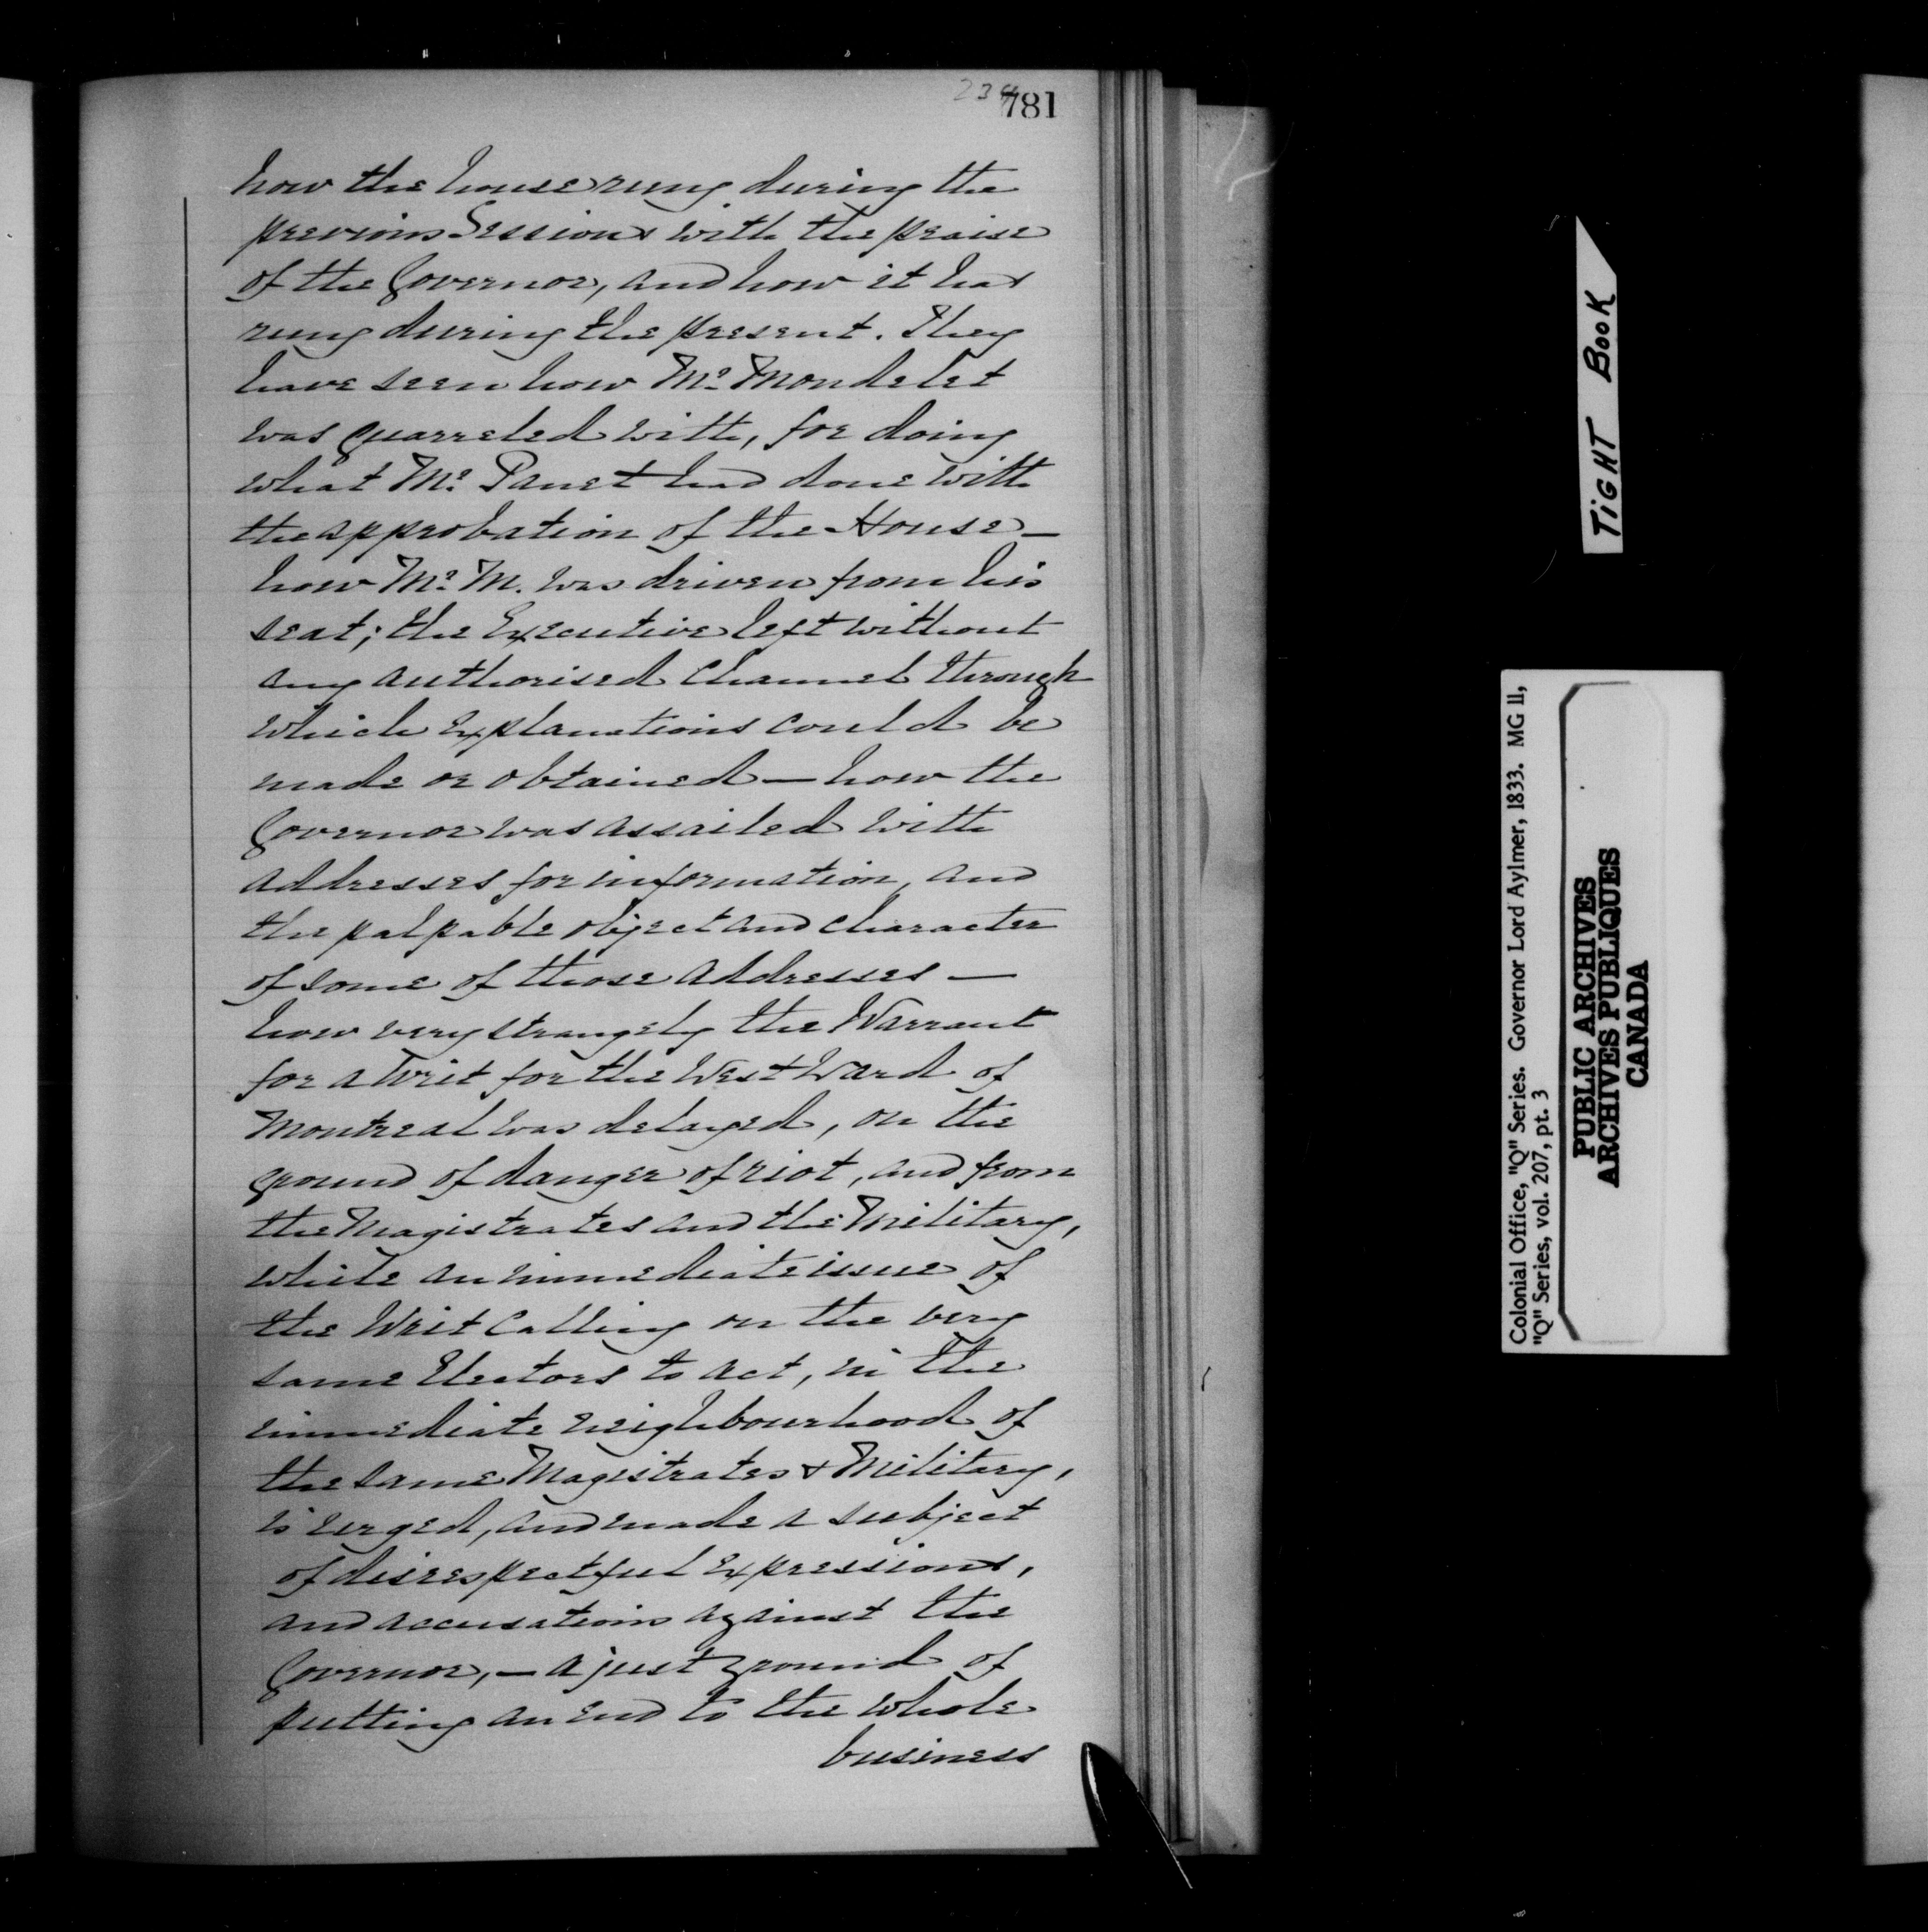 781
how the house rung during the
previous Sessions with the praise
of the Governor, and how it has
rung during the present. They
have seen how Mr. Mondelet
was quarreled with, for doing
what Mr. Panet had done with
the approbation of the House —
how Mr. M. was driven from his
seat; the Executive left without
any authorised channel through
which explanations could be
made or obtained — how the
Governor was assailed with
addresses for information, and
the palpable object and character
of some of those addresses —
how very strangely the Warrant
for a Writ for the West Ward of
Montreal was delayed, on the
ground of danger of riot, and from
the Magistrates and the Military,
while an immediate issue of
the Writ calling on the very
same Electors to act, in the
immediate neighbourhood of
the same Magistrates & Military,
is urged, and made a subject
of disrespectful expressions,
and accusations against the
Governor, — a just ground of
putting an end to the whole
business
TiGHT BOOK
Colonial Office, "Q" Series. Governor Lord Aylmer, 1833. MG 11,
"Q" Series, vol. 207, pt. 3
PUBLIC ARCHIVES
ARCHIVES PUBLIQUES
CANADA